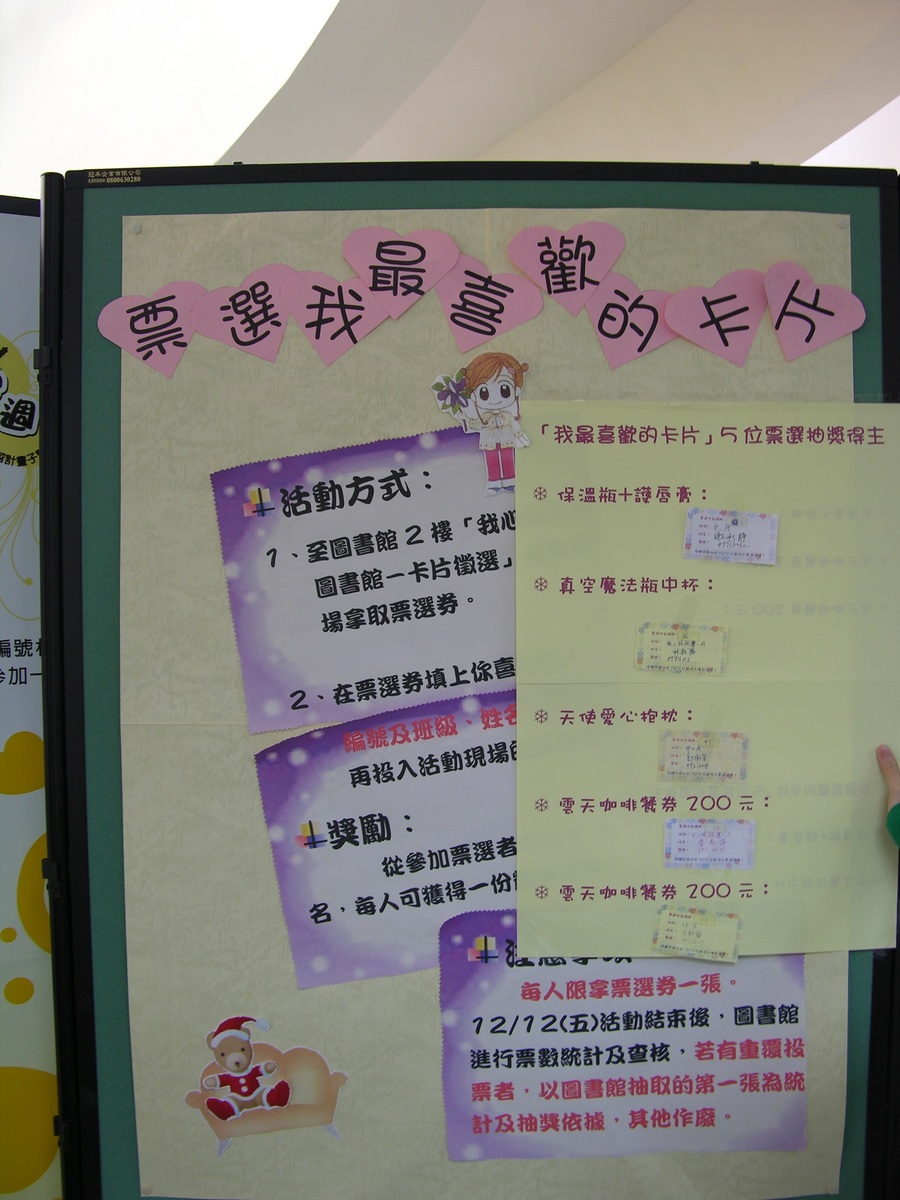 冠年企業有限公司
0800630280
票選我最喜歡的卡片
週
編號
參加一
活動方式：
1、至圖書館2樓「我心
圖書館－卡片徵選」
場拿取票選券。
2、在票選券填上你喜
編號及班級、姓名
再投入活動現場的
獎勵：
從參加票選者
名，每人可獲得一份
「我最喜歡的卡片」5位票選抽獎得主
❄ 保溫瓶+護唇膏：
❄ 真空魔法瓶中杯：
❄ 天使愛心抱枕：
❄ 雲天咖啡餐券 200 元：
❄ 雲天咖啡餐券 200 元：
注意事項
每人限拿票選券一張。
12/12(五)活動結束後，圖書館
進行票數統計及查核，若有重覆投
票者，以圖書館抽取的第一張為統
計及抽獎依據，其他作廢。